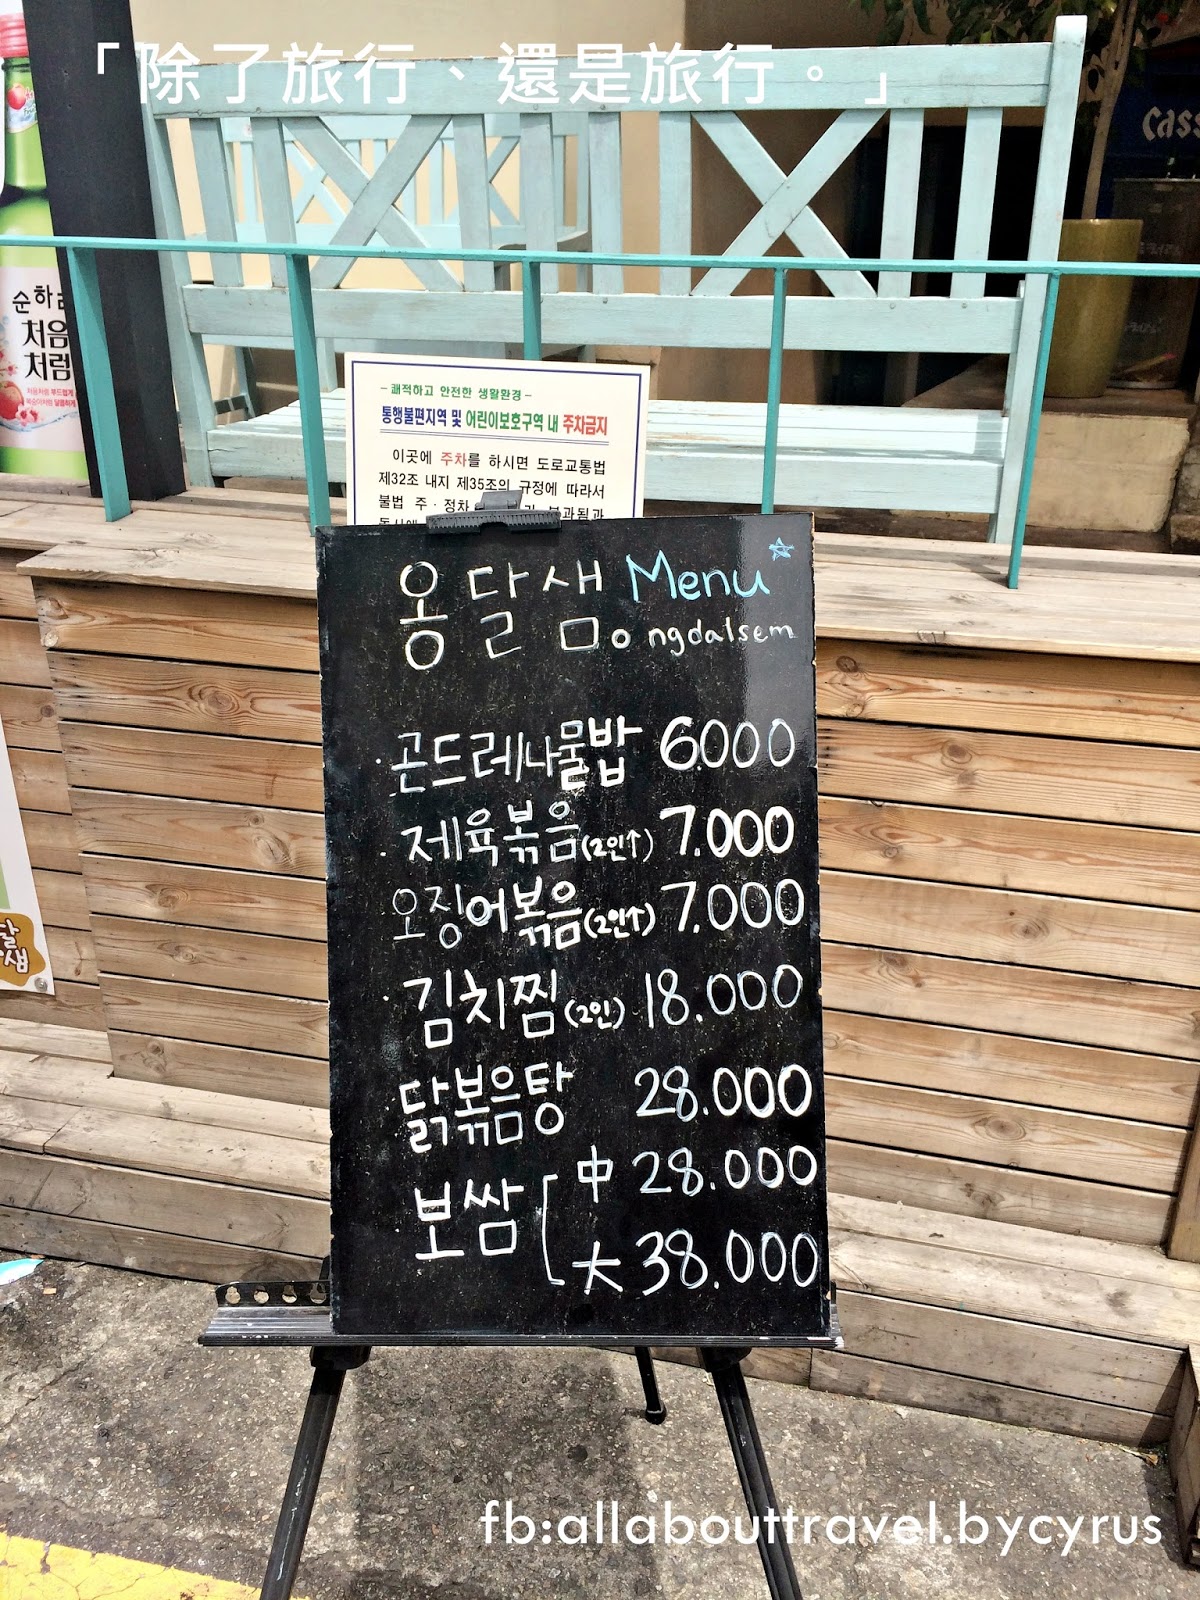 「除了旅行、還是旅行。」
Cass
순하리
처음
처럼
- 쾌적하고 안전한 생활환경 -
통행불편지역 및 어린이보호구역 내 주차금지
이곳에 주차를 하시면 도로교통법
제32조 내지 제35조의 규정에 따라서
불법 주·정차 부과됨과
옹달샘 Menu
ongdalsem
·곤드레나물밥 6.000
·제육볶음(2인↑) 7.000
·오징어볶음(2인↑) 7.000
·김치찜(2인) 18.000
·닭볶음탕 28.000
보쌈 中 28.000
大 38.000
달
샘
fb:allabouttravel.bycyrus